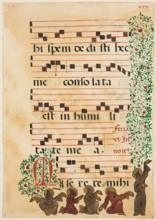 hi spem de di sti hec
me conso lata
est in humi li
tate me a.
M i se re re mihi